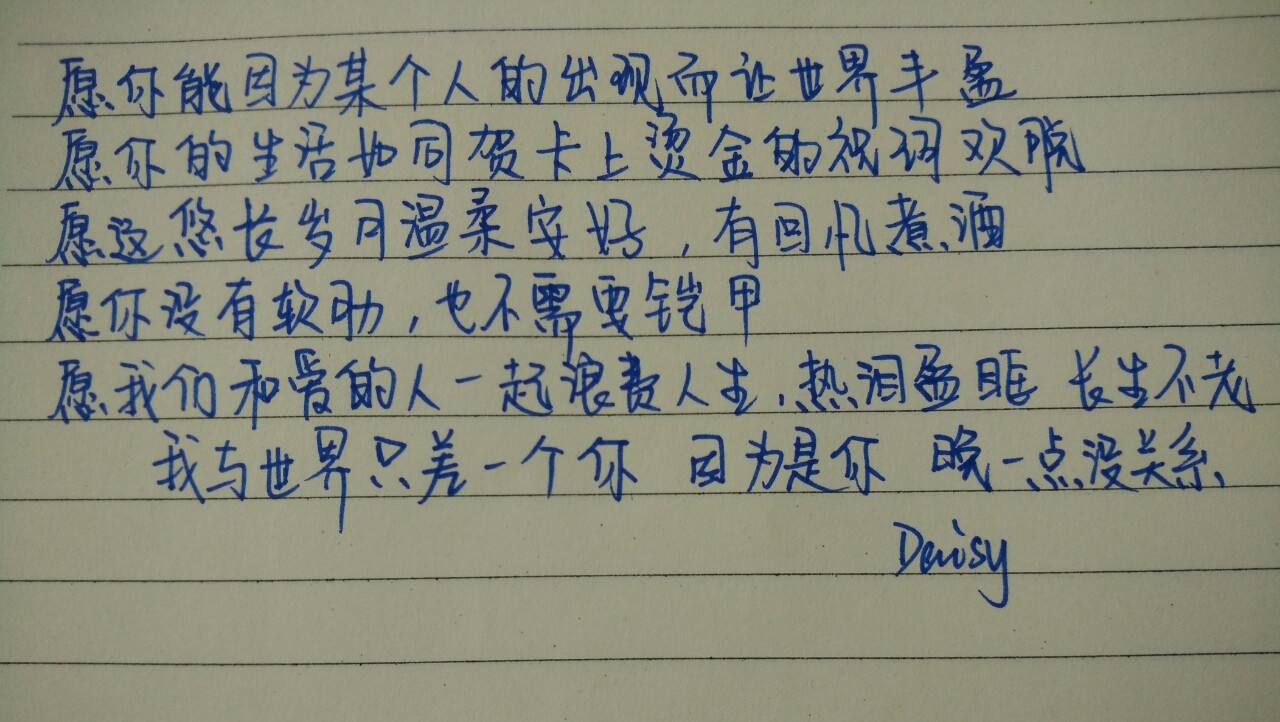 愿你能因为某个人的出现而让世界丰盈
愿你的生活如同贺卡上烫金的祝词欢脱
愿这悠长岁月温柔安好,有回忆煮酒
愿你没有软肋,也不需要铠甲
愿我们和爱的人一起浪费人生,热泪盈眶 长生不老
我与世界只差一个你 因为是你 晚一点没关系.
Daisy